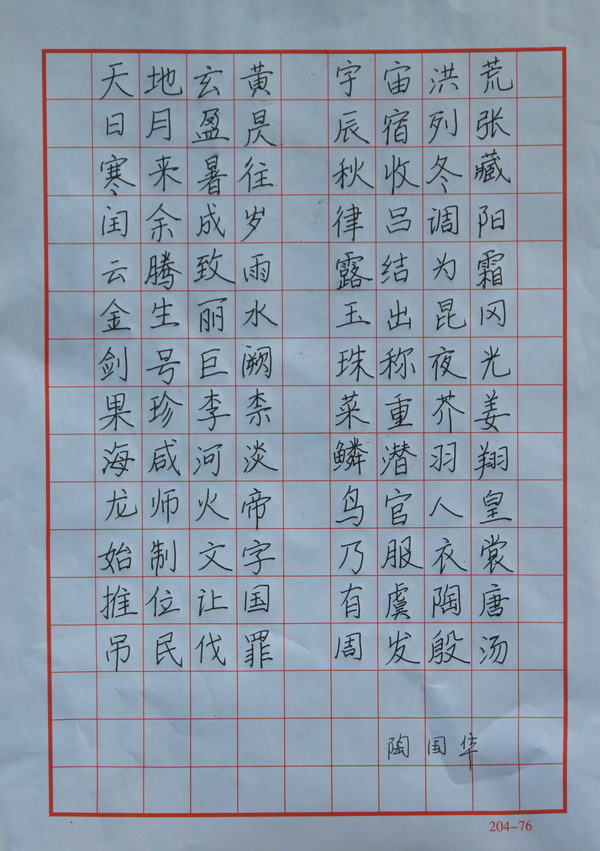 天地玄黄 宇宙洪荒
日月盈昃 辰宿列张
寒来暑往 秋收冬藏
闰余成岁 律吕调阳
云腾致雨 露结为霜
金生丽水 玉出昆冈
剑号巨阙 珠称夜光
果珍李柰 菜重芥姜
海咸河淡 鳞潜羽翔
龙师火帝 鸟官人皇
始制文字 乃服衣裳
推位让国 有虞陶唐
吊民伐罪 周发殷汤
陶国华
204-76